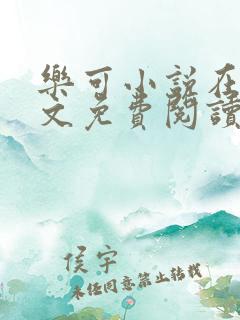 樂可小說在
文免費閱讀
侯宇
未经同意禁止转载